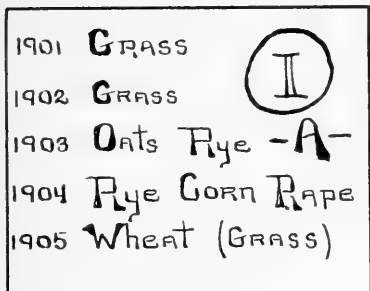 1901 Grass
I
1902 Grass
1903 Oats Rye -A-
1904 Rye Corn Rape
1905 Wheat (Grass)